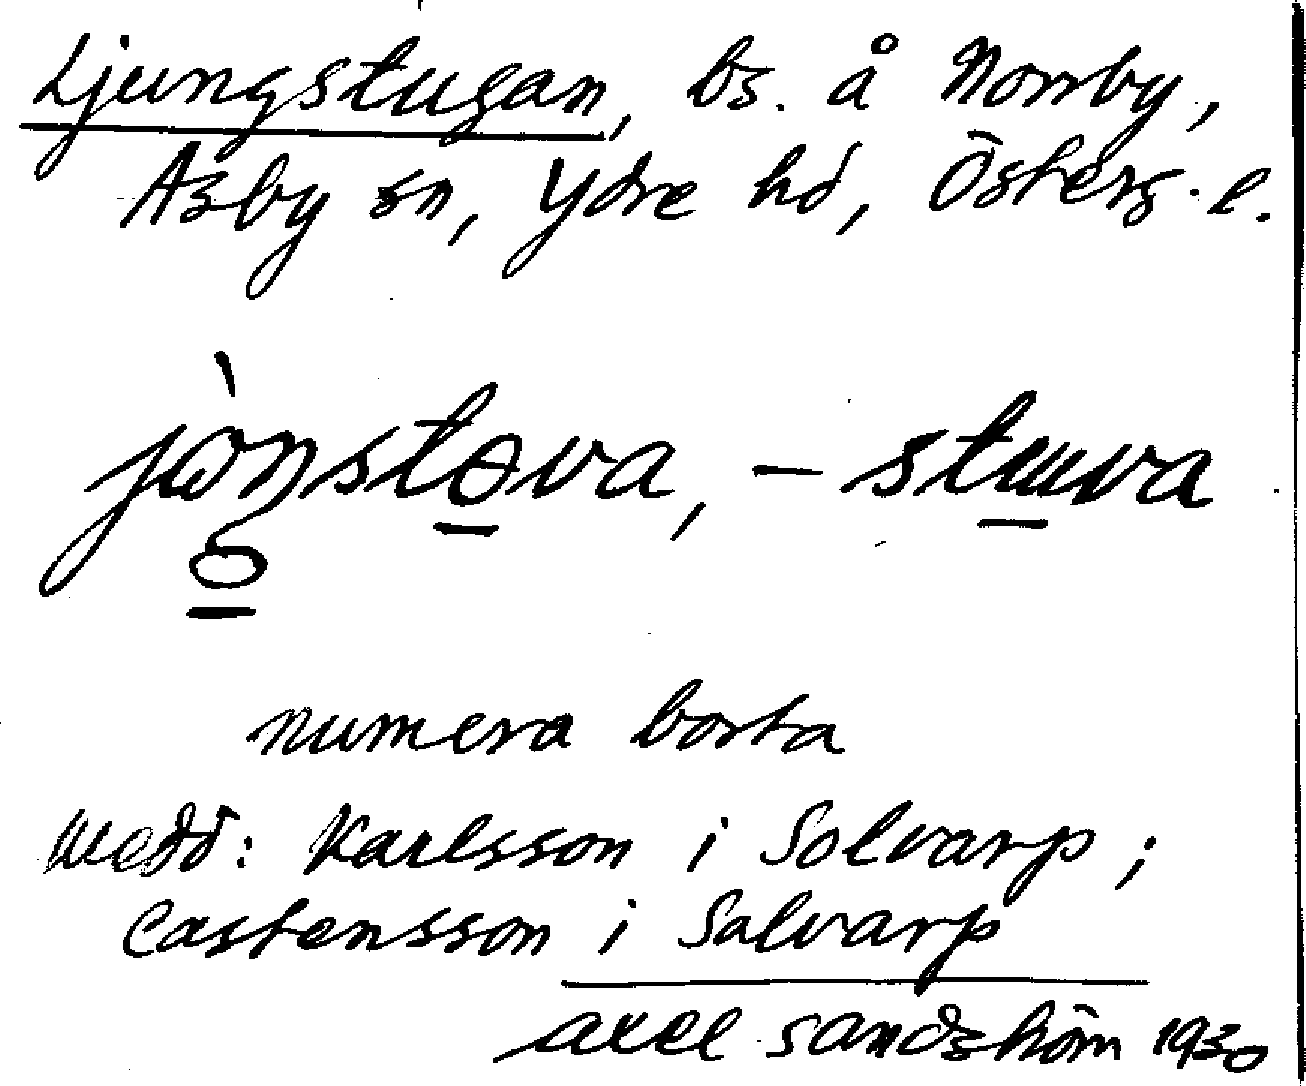 Ljungstugan, bs. å Norrby,
Asby sn, Ydre hd, Österg. l.
jòŋstɵva, – stuva
numera borta
Medd: Karlsson i Solvarp;
Castensson i Salvarp
Axel Sandström 1930